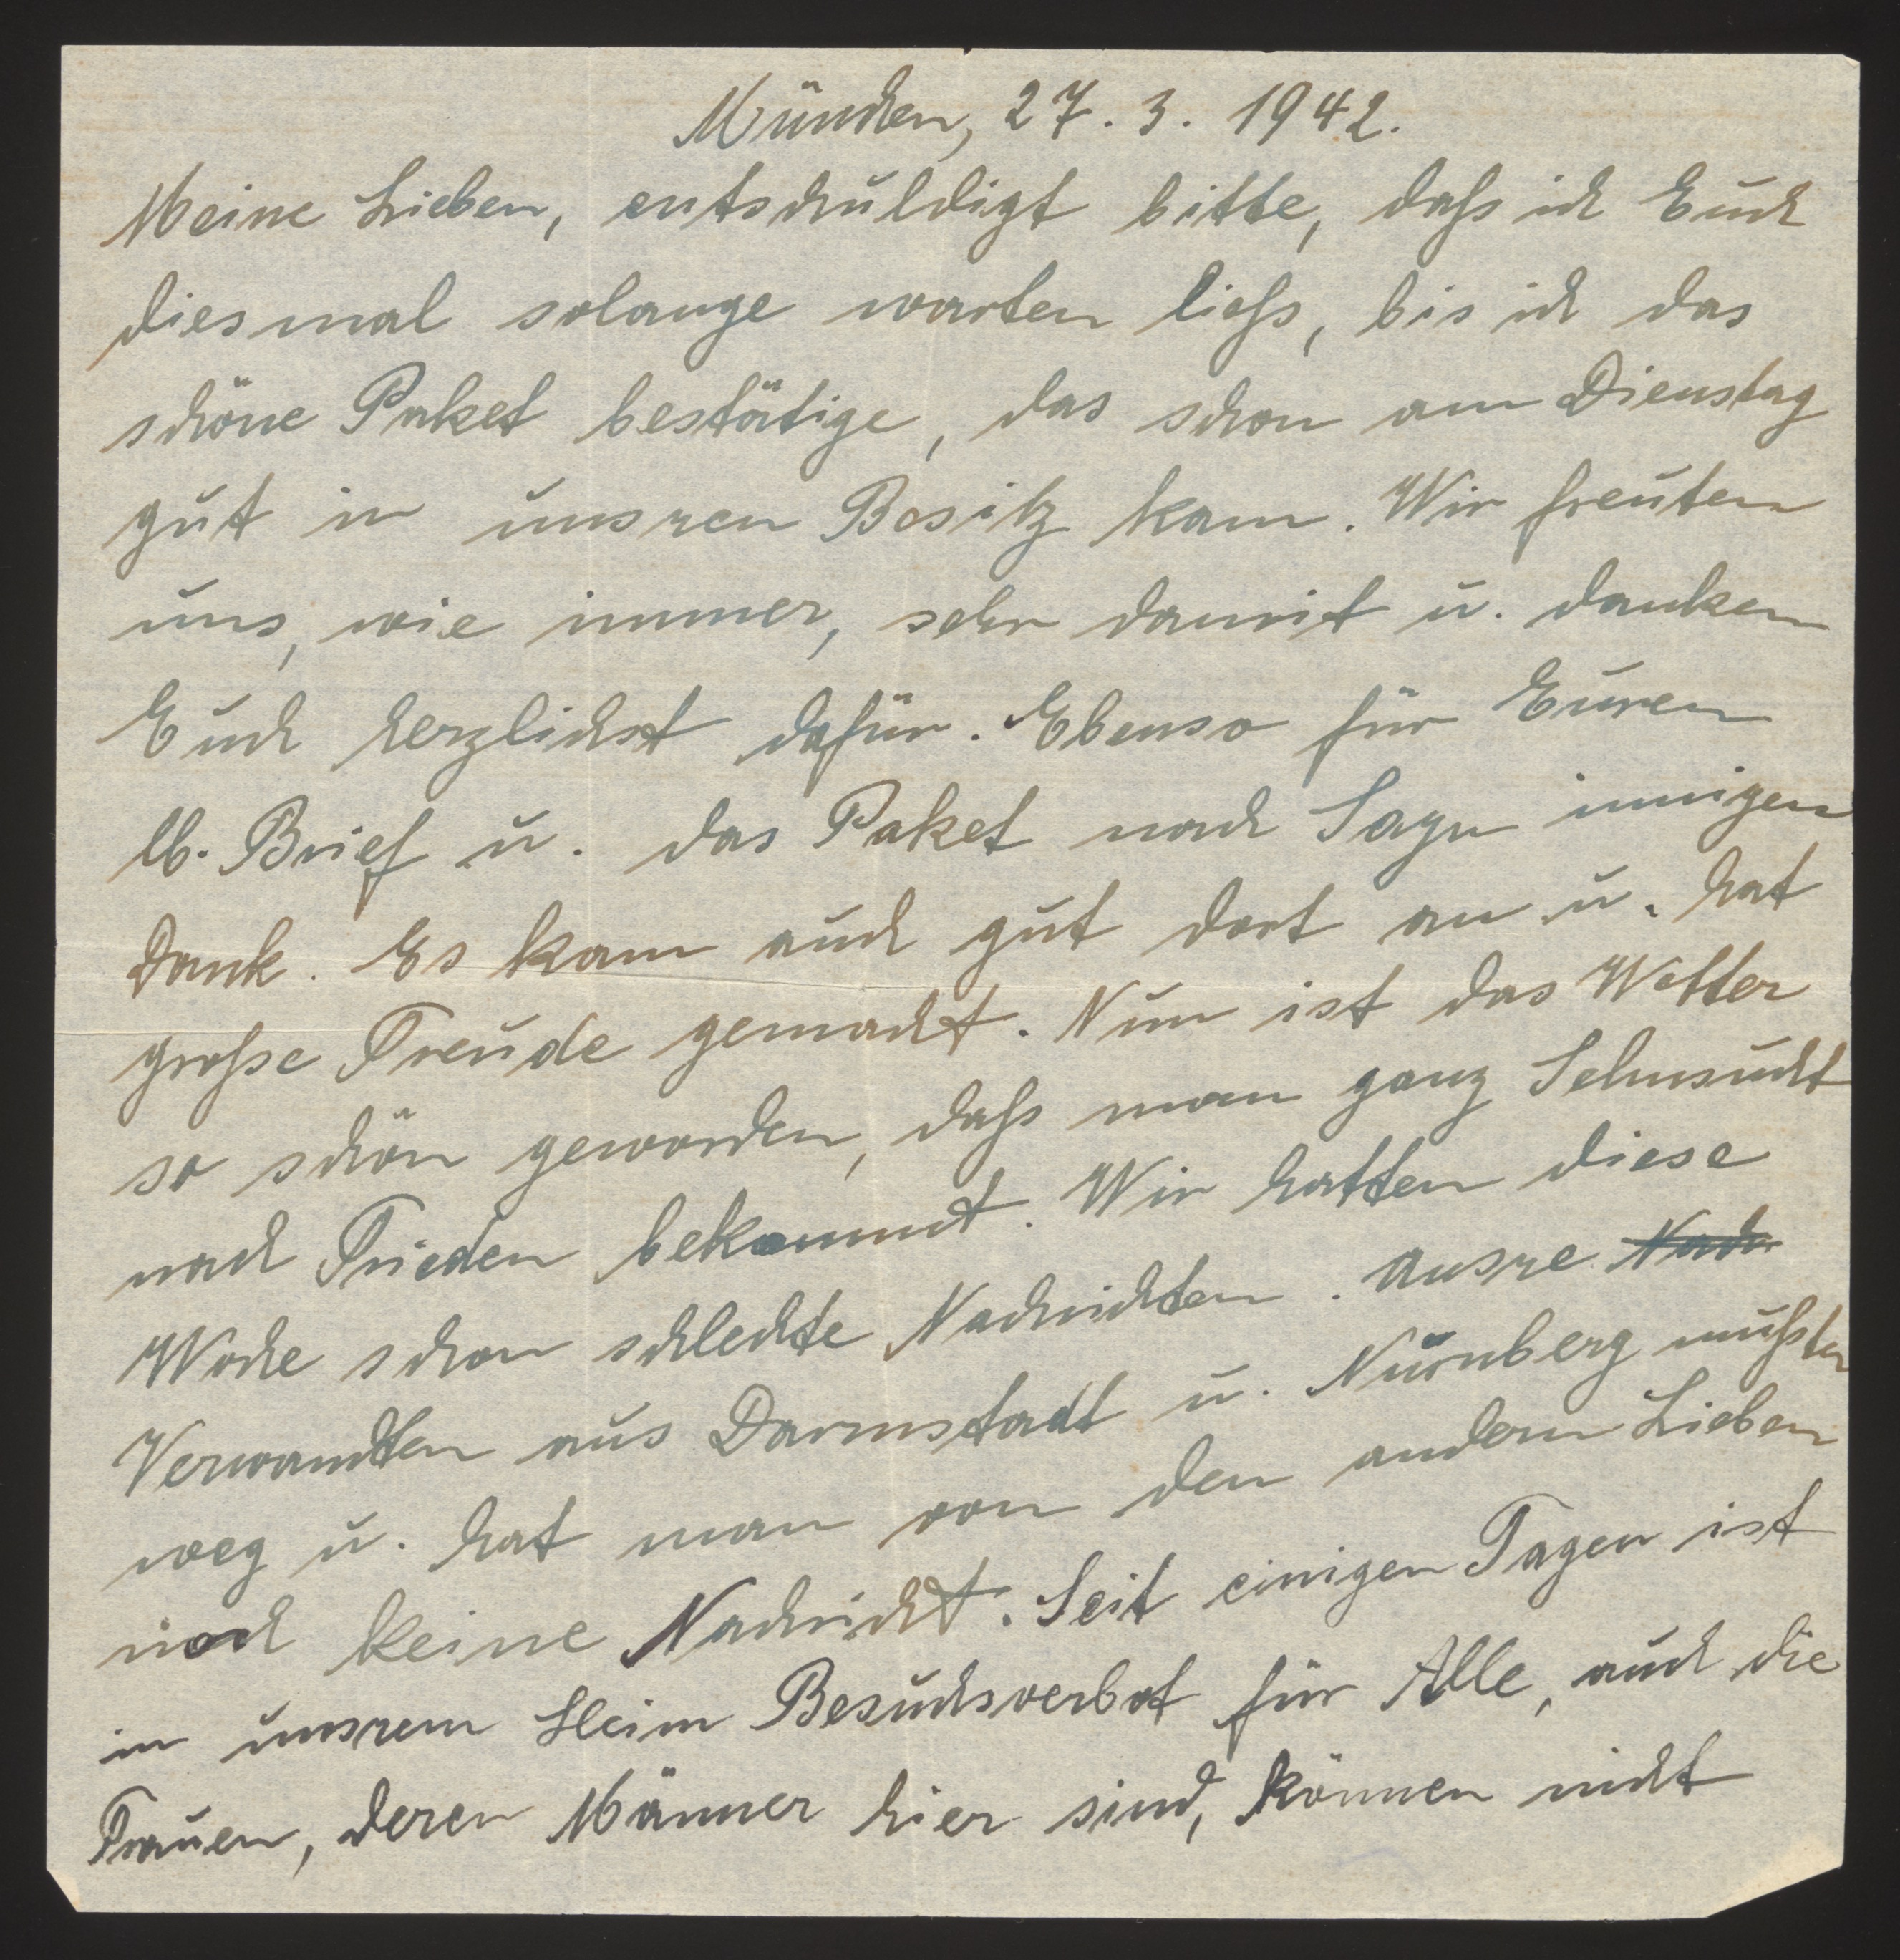 München, 27. 3. 1942.
Meine Lieben, entschuldigt bitte, daß ich Euch
diesmal solange warten ließ, bis ich das
schöne Paket bestätige, das schon am Dienstag
gut in unsren Besitz kam. Wir freuten
uns, wie immer, sehr damit u. danken
Euch herzlichst dafür. Ebenso für Euren
lb. Brief u. das Paket nach Sayn innigen
Dank. Es kam auch gut dort an u. hat
große Freude gemacht. Nun ist das Wetter
so schön geworden, daß man ganz Sehnsucht
nach Frieden bekommt. Wir hatten diese
Woche schon schlechte Nachrichten. Unsre Nach
Verwandten aus Darmstadt u. Nürnberg mußten
weg u. hat man von den andern Lieben
noch keine Nachricht. Seit einigen Tagen ist
in unsrem Heim Besuchsverbot für Alle, auch die
Frauen, deren Männer hier sind, können nicht